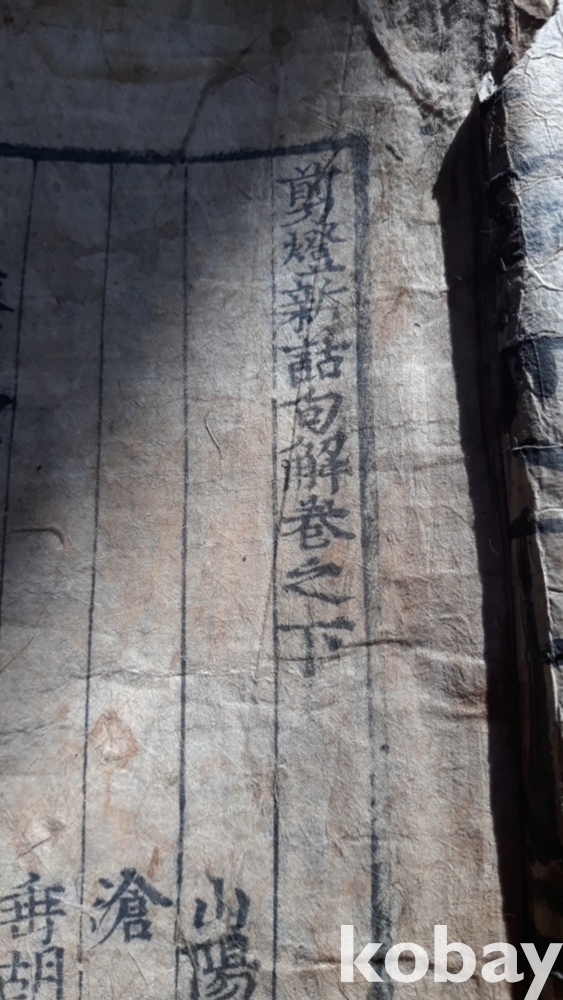 剪燈新話句解卷之下
山陽
滄
垂胡
kobay